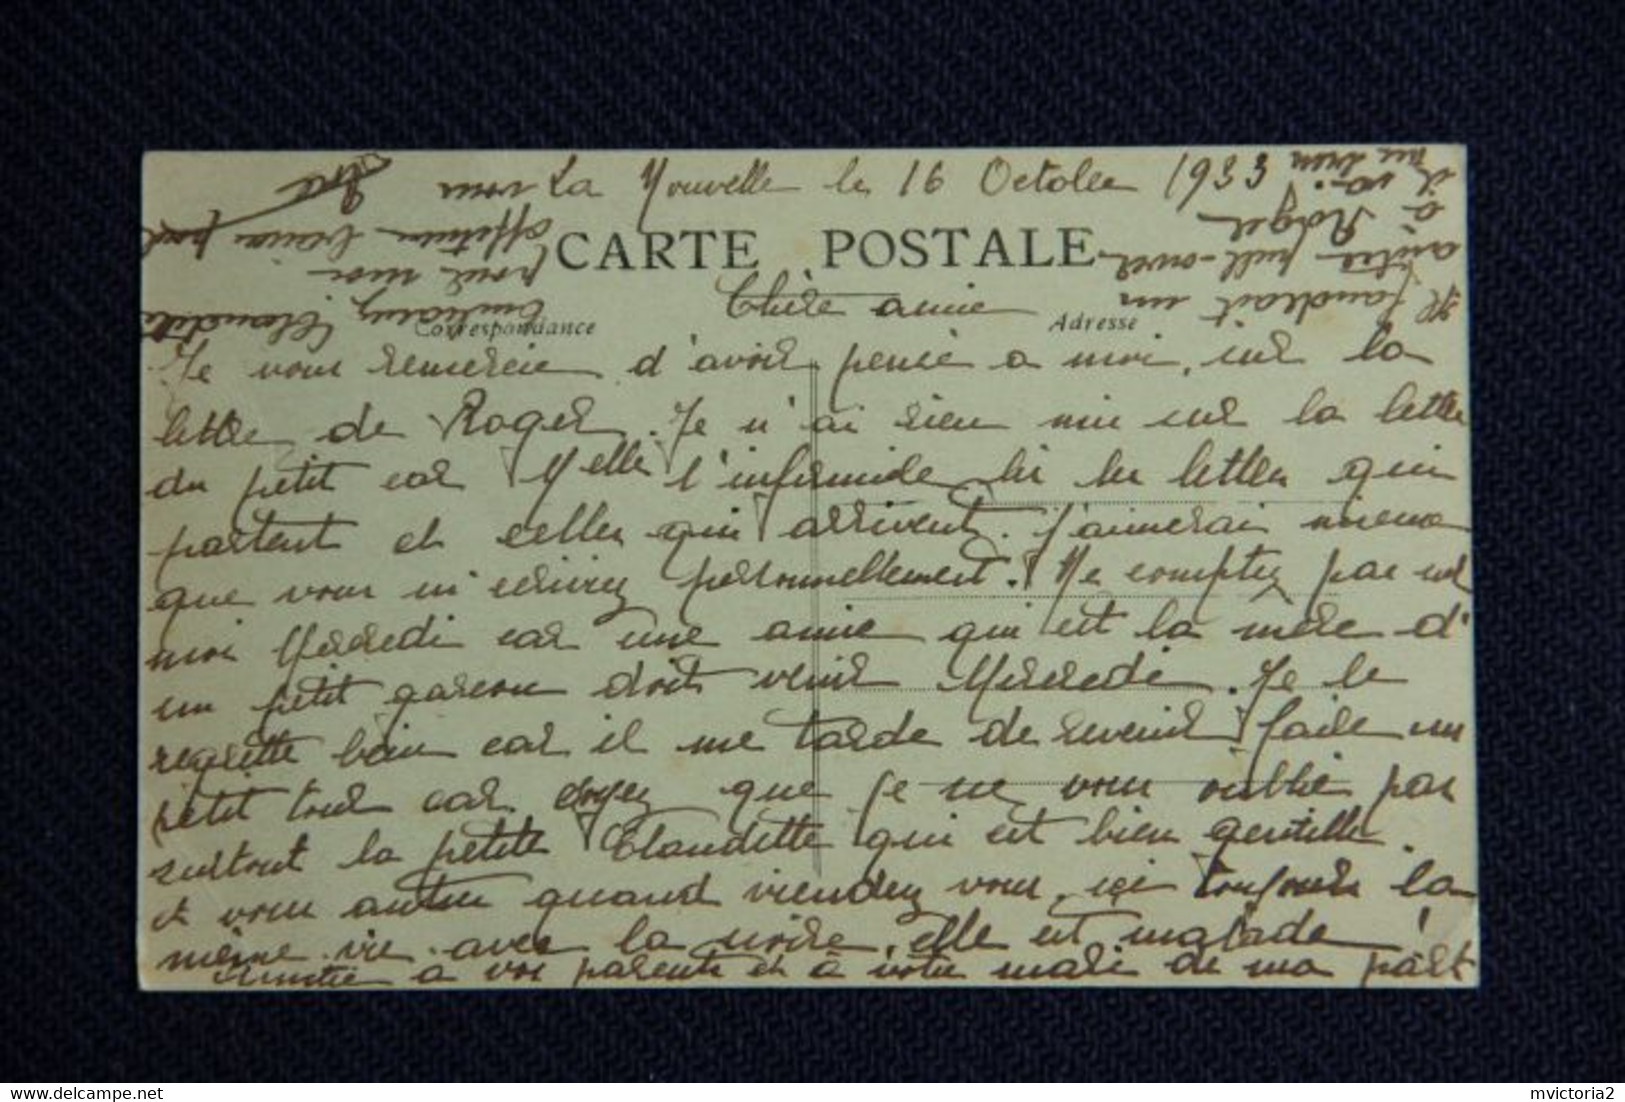 La Nouvelle le 16 Octobre 1933
CARTE POSTALE
Chère amie
Correspondance
Adresse
Je vous remercie d'avoir pensé a moi, sur la
lettre de Roger. Je n'ai rien mis sur la lettre
du petit car Melle l'infirmière lis les lettres qui
partent et celles qui arrivent. J'aimerai mieux
que vous m'écrivez personnellement. Ne comptez pas sur
moi Mercredi car une amie qui est la mère d'
un petit garcon doit venir Mercredi. Je le
regrette bien car il me tarde de revenir faire un
petit tour car croyez que je ne vous oublie pas
surtout la petite Claudette qui est bien gentille.
et vous autres quand viendez vous, ici toujours la
même vie avec la noire, elle est malade !
Amitiés a vos parents et à votre mari de ma part
Il faudrait un
autre pull-over
à Roger
il va
Embrassez Claudette
pour moi
affection
vous
mvictoria2